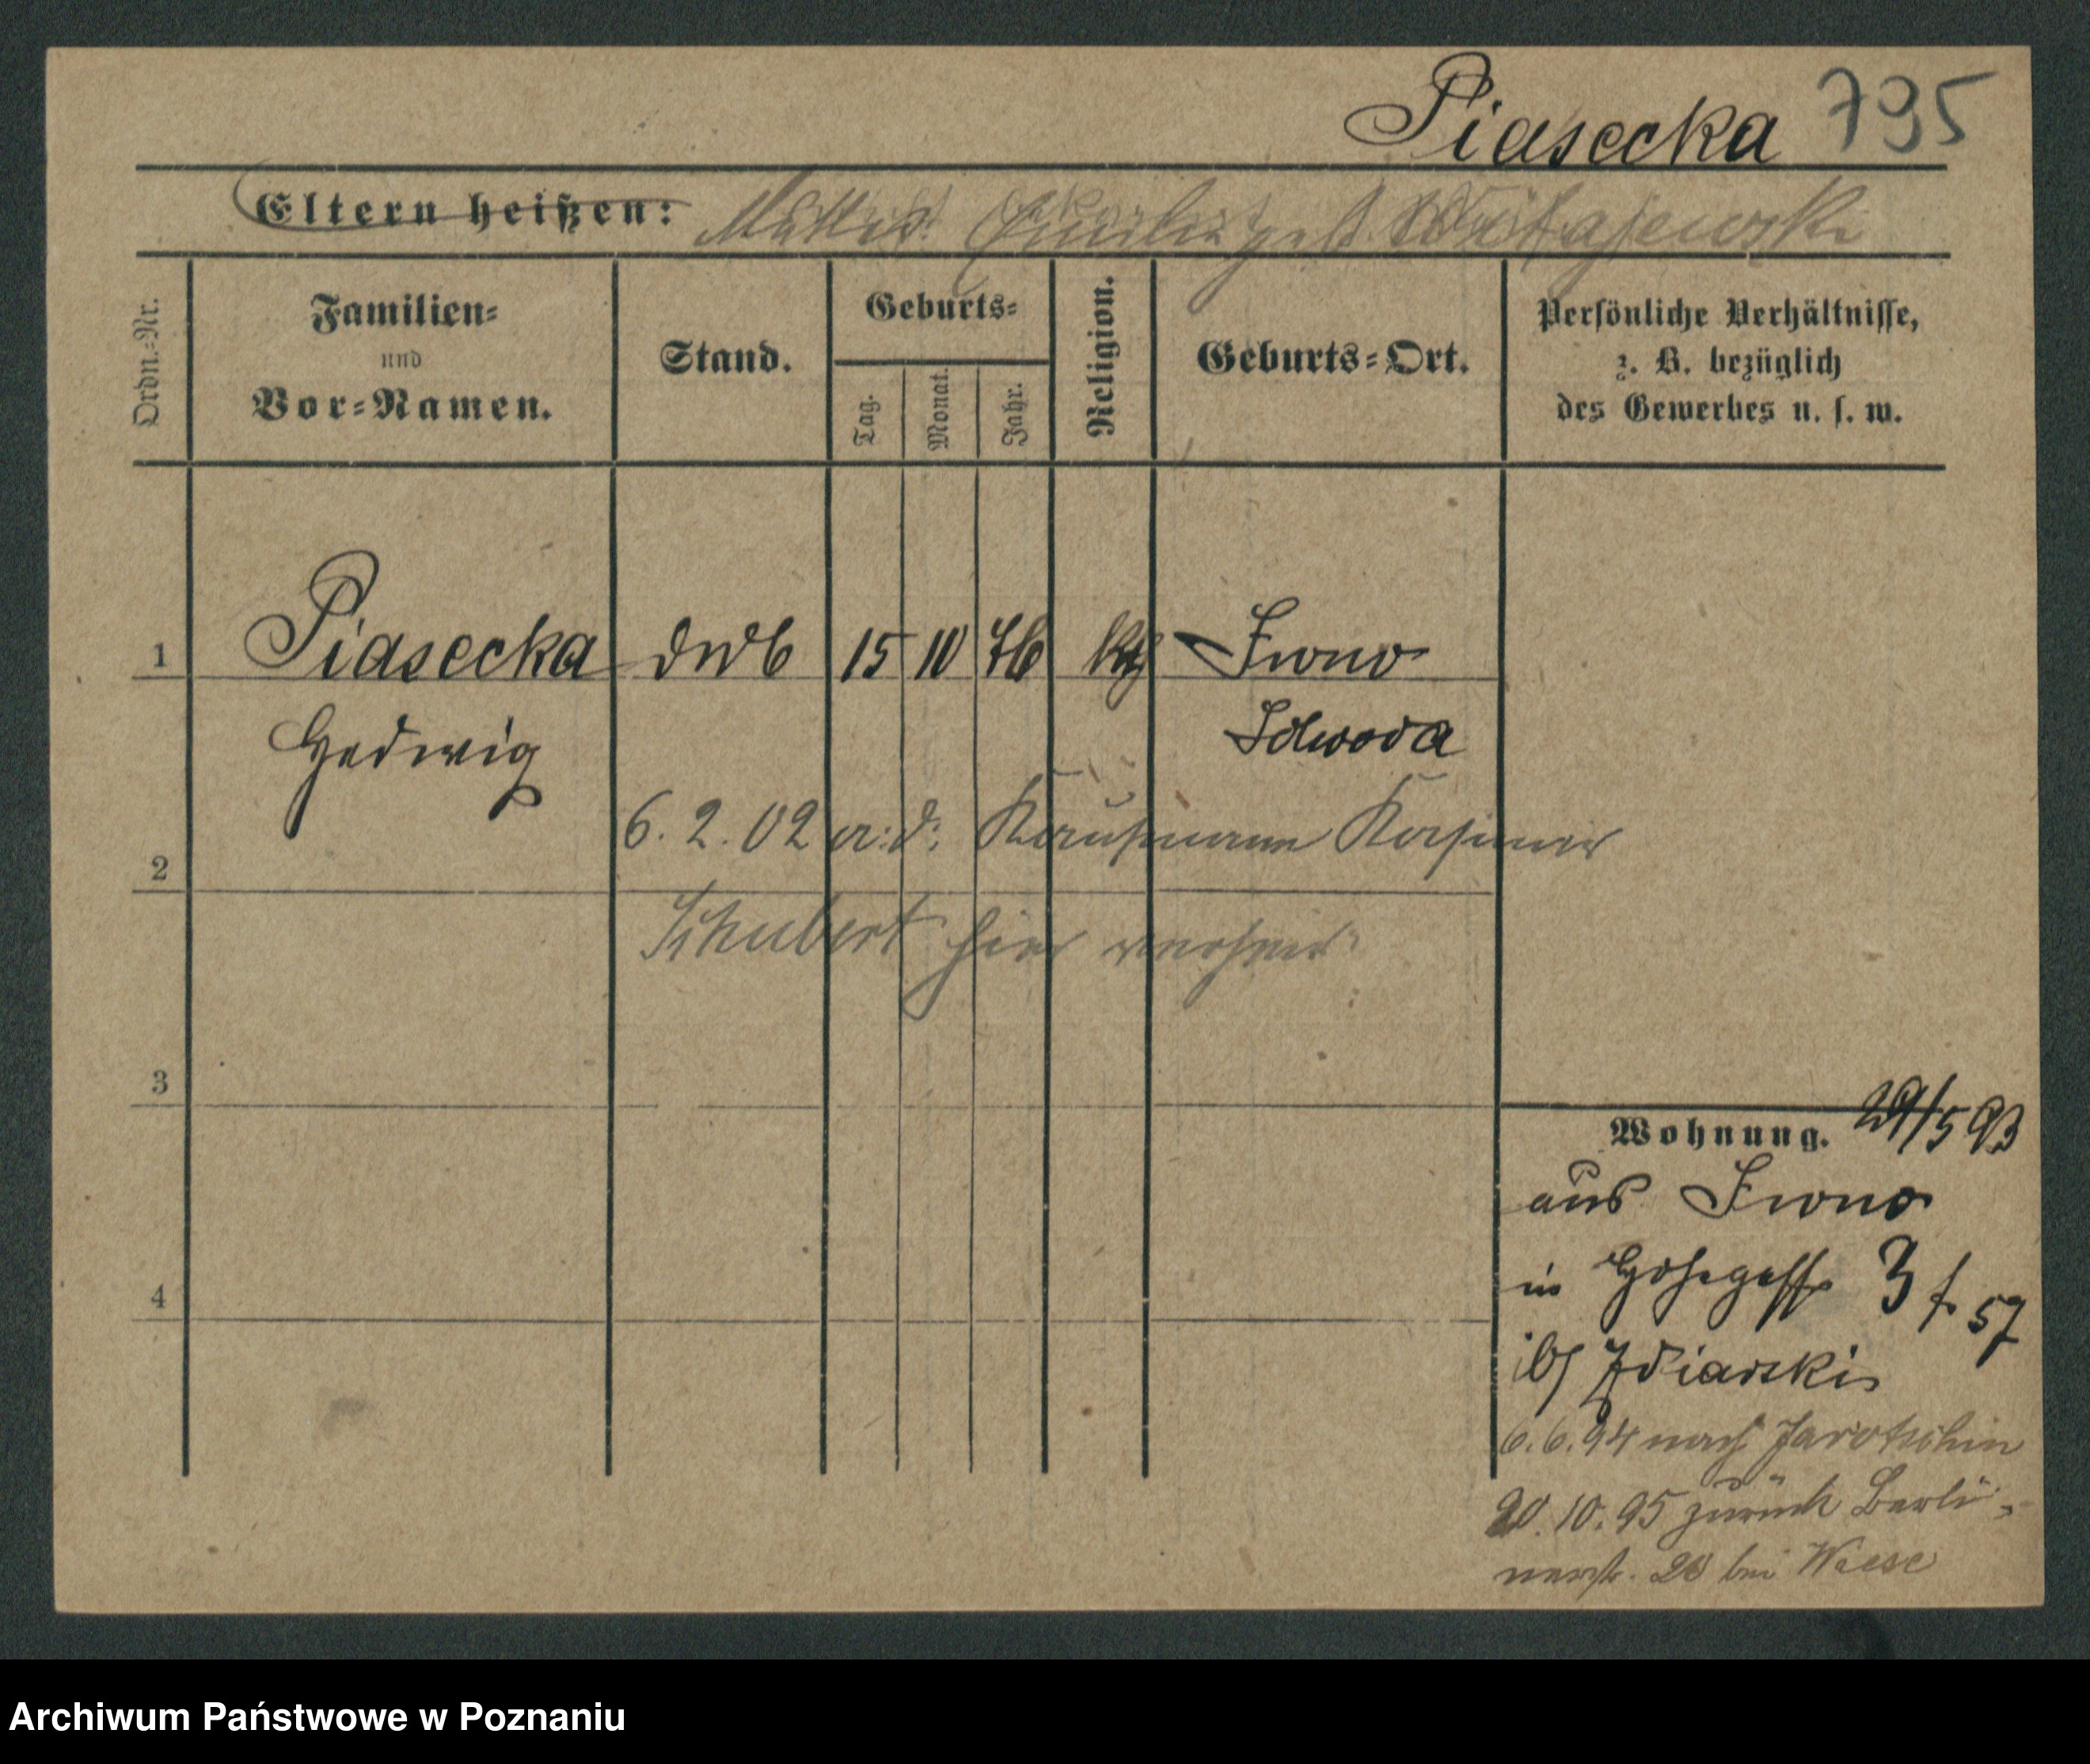 Piasecka 795
Eltern heißen: Mutter: geb.
Ordn.-Nr.
Familien-
und
Vor-Namen.
Stand.
Geburts-
Tag.
Monat.
Jahr.
Religion.
Geburts-Ort.
Persönliche Verhältnisse,
z. B. bezüglich
des Gewerbes u. s. w.
1 Piasecka 15 10 76 kth Iwno
Hedwig Schroda
6. 2. 02 a: d: Kaufmann Kasimir
2
Schubert hier verheir.
3
4
Wohnung. 29/5 93
aus Iwno
in Hohegasse 3 f 57
b/ Zdiarski
6. 6. 94 nach Jarotschin
20. 10. 95 zurück Berli-
nerstr. 20 bei Wiese
Archiwum Państwowe w Poznaniu